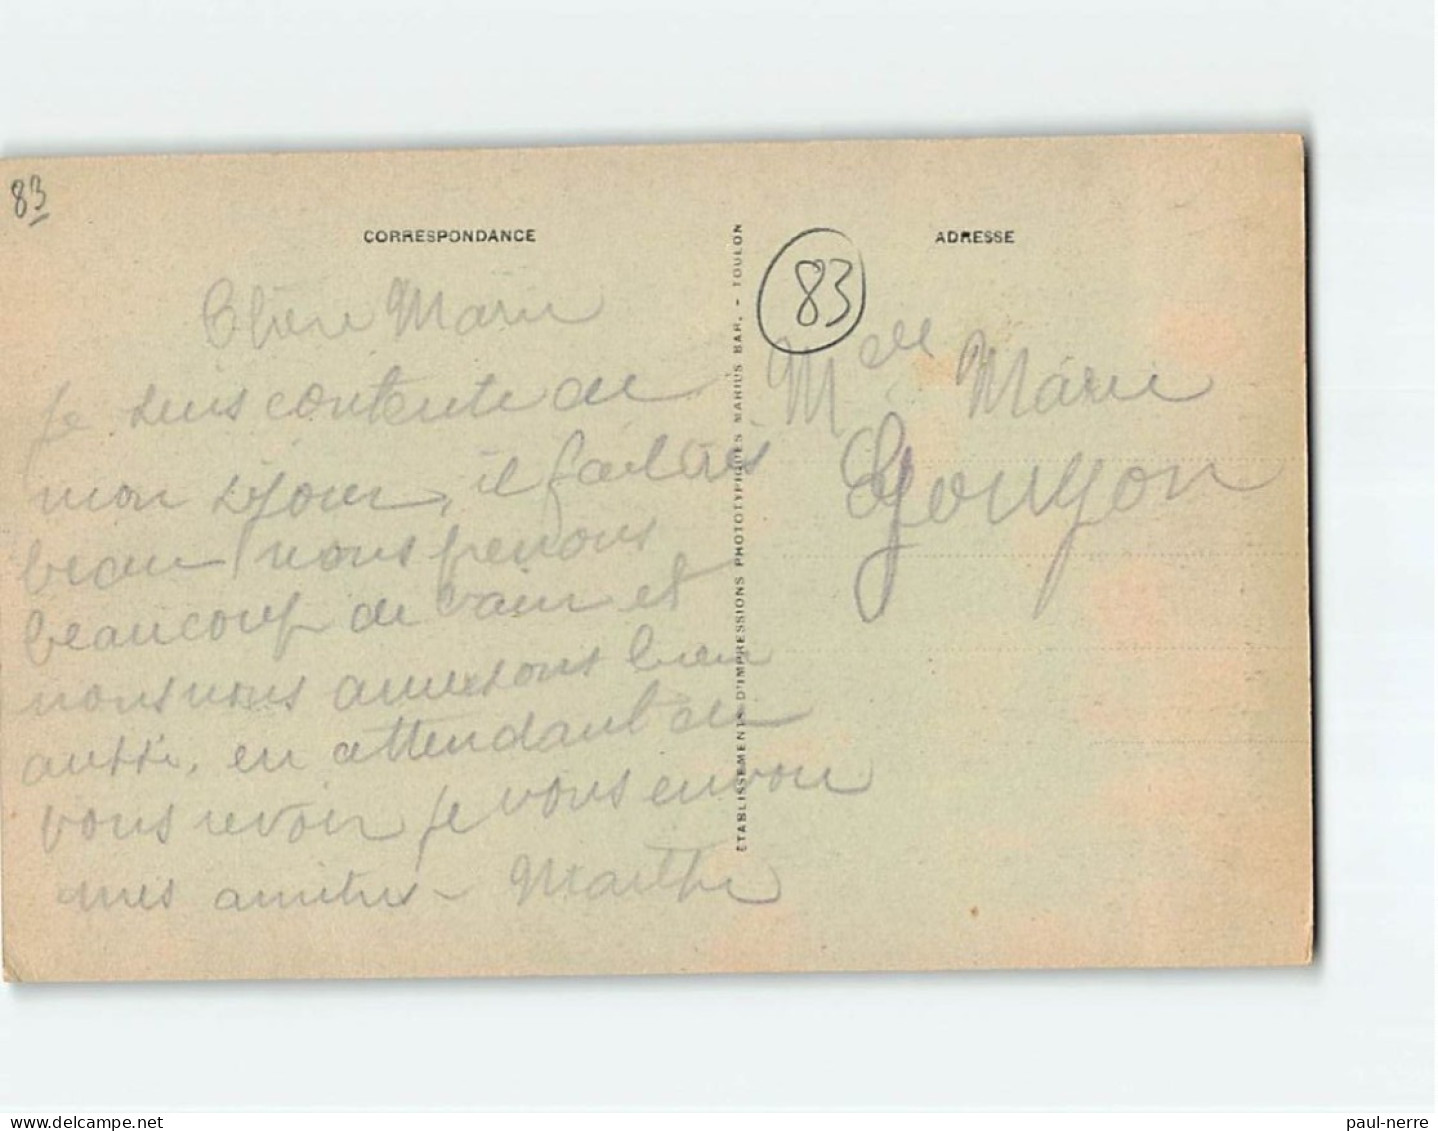 83
CORRESPONDANCE
Chère Marie
Je suis contente de
mon séjour, il fait très
beau nous prenons
beaucoup de bain et
nous nous amusons bien
aussi, en attendant de
vous revoir je vous envoie
mes amitiés - Marthe
ÉTABLISSEMENTS D'IMPRESSIONS PHOTOTYPIQUES MARIUS BAR. - TOULON
83
ADRESSE
Melle Marie
Gouyon
paul-nerre